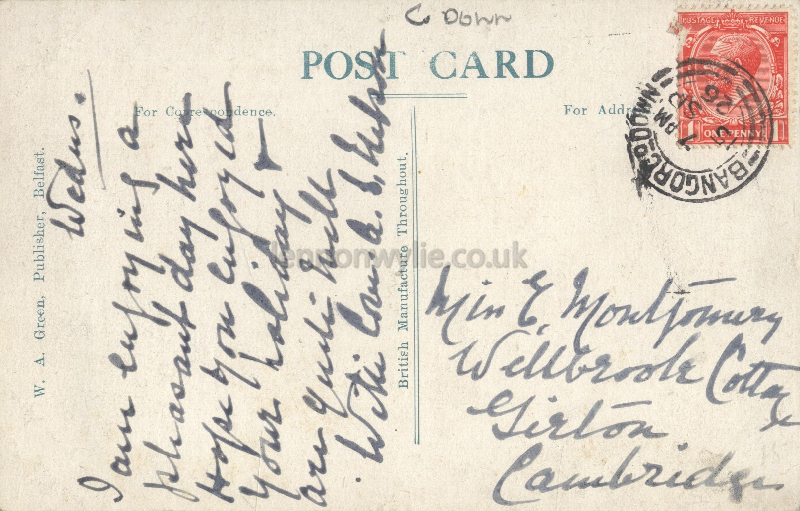 C DOWN
POST CARD
For Correspondence.
For Address
POSTAGE REVENUE
ONE PENNY
BANGOR CO DOWN
7 AM
SP
26
W. A. Green, Publisher, Belfast.
British Manufacture Throughout.
Wedns.
I am enjoying a
pleasant day here
Hope you enjoyed
your holiday &
are quite well
With love. A. S.
Miss E. Montgomery
Wellbrook Cottage
Girton
Cambridge
lennonwylie.co.uk